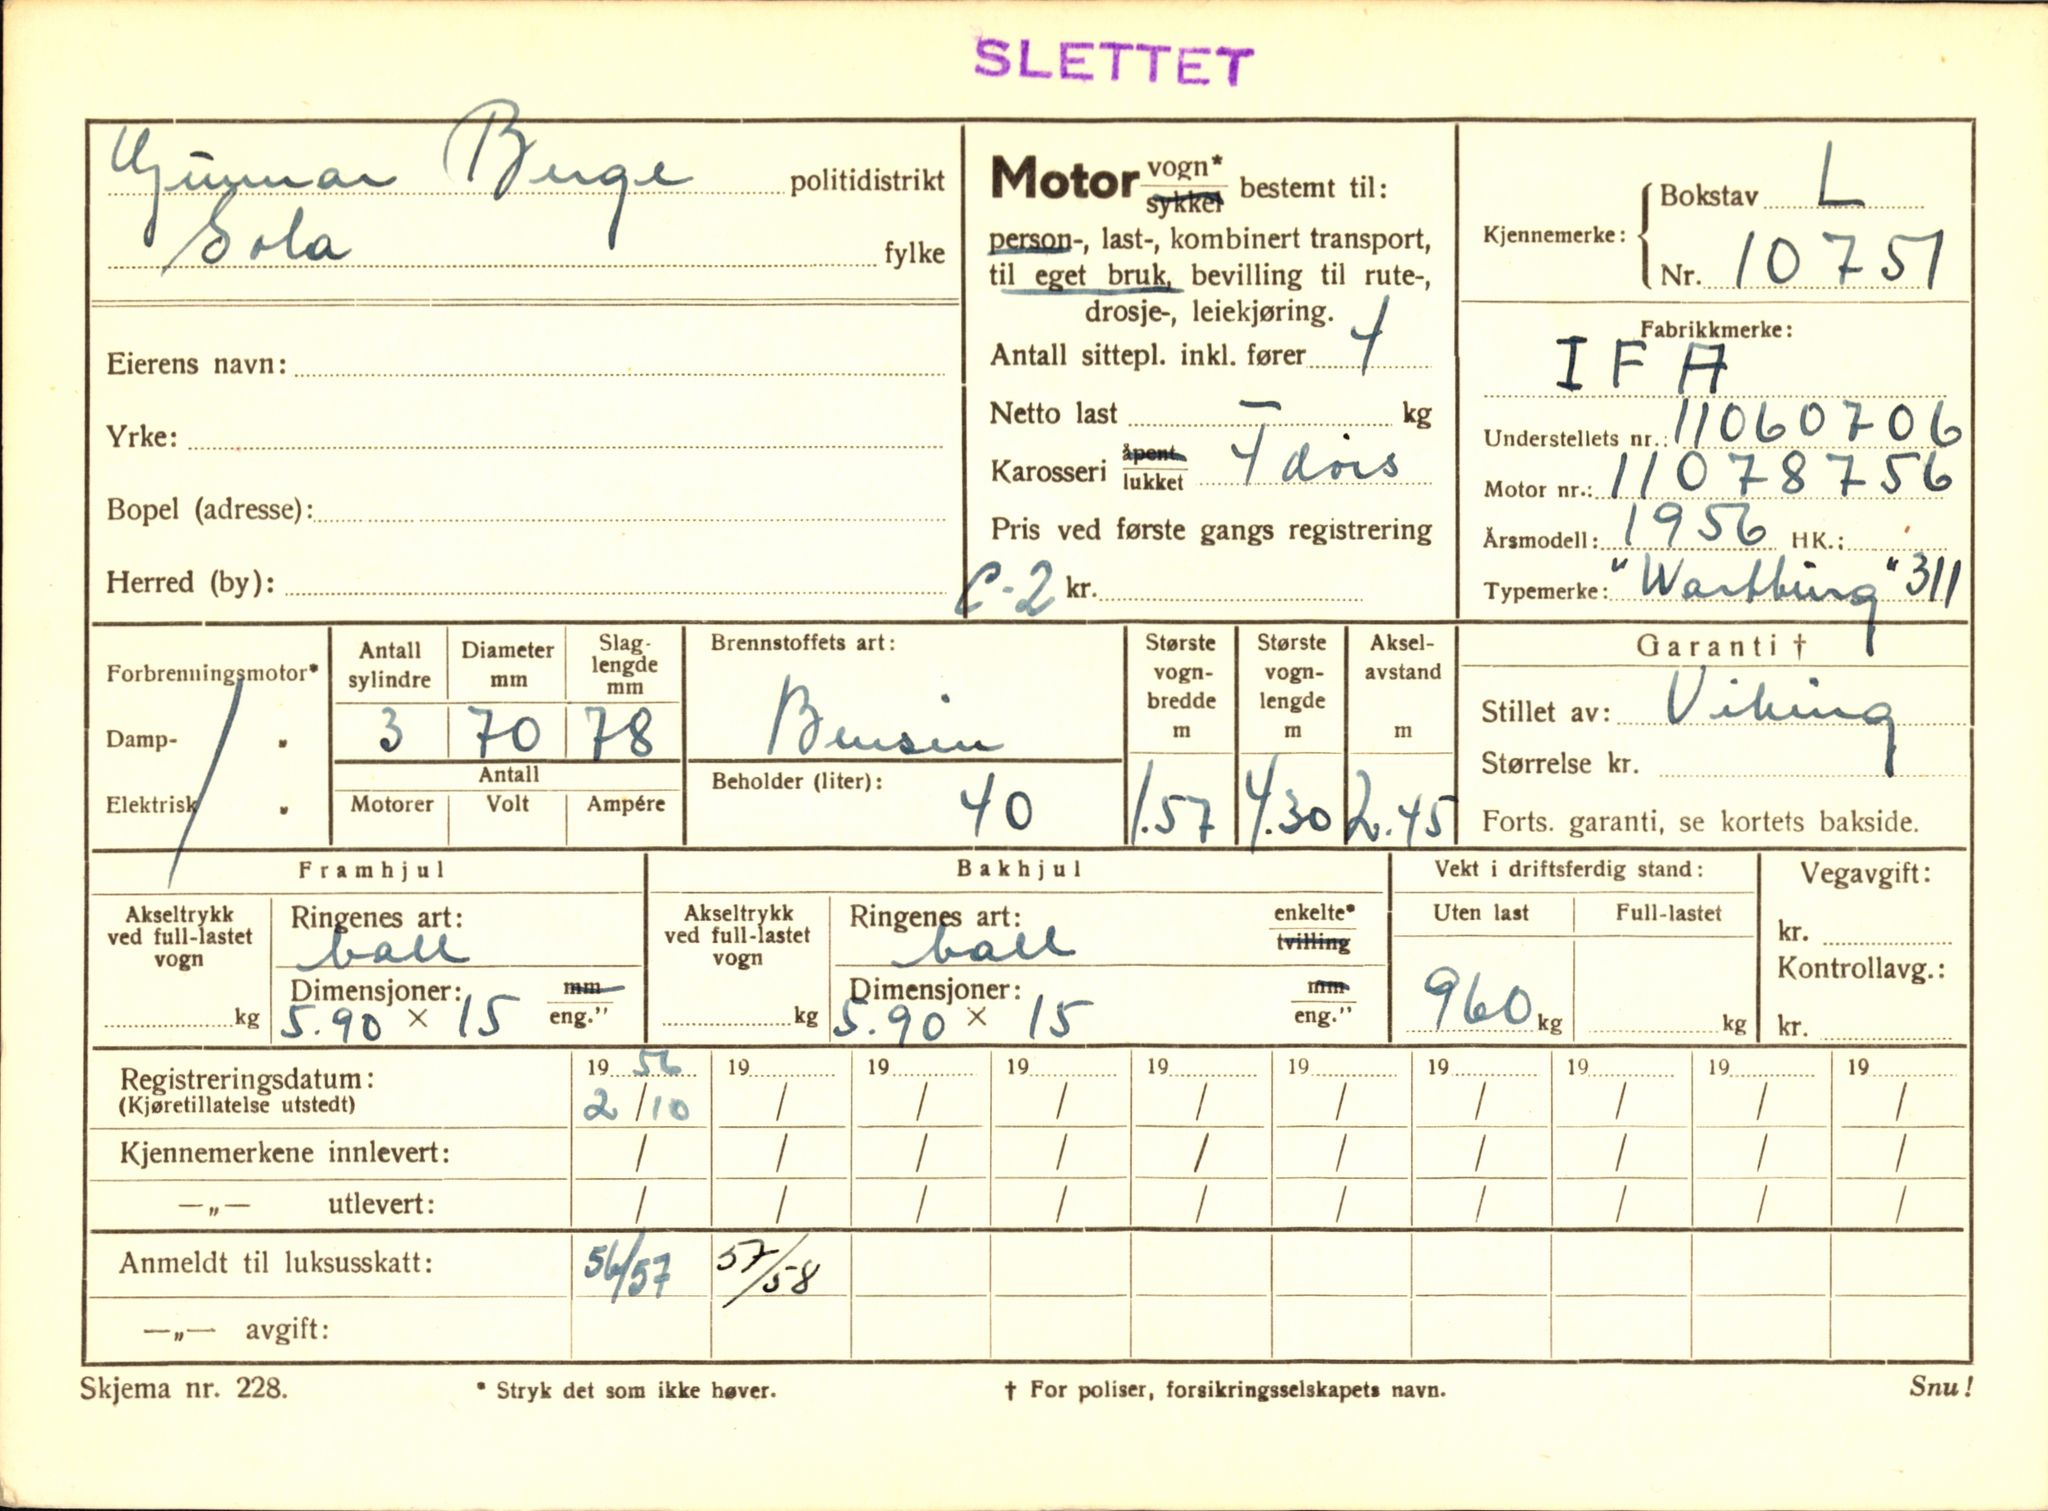 SLETTET
Gunnar Berge politidistrikt
Sola fylke
Eierens navn:
Yrke:
Bopel (adresse):
Herred (by):
Motor vogn* sykkel bestemt til:
person-, last-, kombinert transport,
til eget bruk, bevilling til rute-,
drosje-, leiekjøring.
Antall sittepl. inkl. fører 4
Netto last — kg
Karosseri åpent lukket 4 dørs
Pris ved første gangs registrering
C-2 kr.
Kjennemerke: Bokstav L
Nr. 10751
Fabrikkmerke:
IFA
Understellets nr.: 11060706
Motor nr.: 11078756
Årsmodell: 1956 HK.:
Typemerke: "Wartburg" 311
Forbrenningsmotor*
Damp- "
Elektrisk "
Antall sylindre
Diameter mm
Slag-
lengde
mm
3 70 78
Antall
Motorer Volt Ampére
Brennstoffets art:
Bensin
Beholder (liter):
40
Største
vogn-
bredde
m
1.57
Største
vogn-
lengde
m
4.30
Aksel-
avstand
m
2.45
Garanti †
Stillet av: Viking
Størrelse kr.
Forts. garanti, se kortets bakside.
Framhjul
Akseltrykk
ved full-lastet
vogn
kg
Ringenes art:
ball
Dimensjoner: mm
5.90 × 15 eng."
Bakhjul
Akseltrykk
ved full-lastet
vogn
kg
Ringenes art: enkelte*
ball tvilling
Dimensjoner: mm
5.90 × 15 eng."
Vekt i driftsferdig stand:
Uten last Full-lastet
960 kg kg
Vegavgift:
kr.
Kontrollavg.:
kr.
Registreringsdatum: 19 56 19 19 19 19 19 19 19 19 19
(Kjøretillatelse utstedt) 2/10 / / / / / / / / /
Kjennemerkene innlevert: / / / / / / / / / /
—„— utlevert: / / / / / / / / / /
Anmeldt til luksusskatt: 56/57 57/58
—„— avgift:
Skjema nr. 228. * Stryk det som ikke høver. † For poliser, forsikringsselskapets navn. Snu!